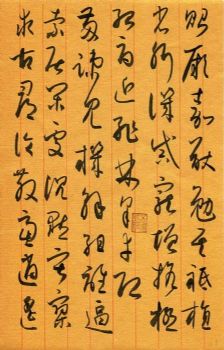 貽厥嘉猷勉其祗植
省躬譏誡寵增抗極
殆辱近恥林皋幸即
兩疏見機解組誰逼
索居閑處沉默寂寥
求古尋論散慮逍遙